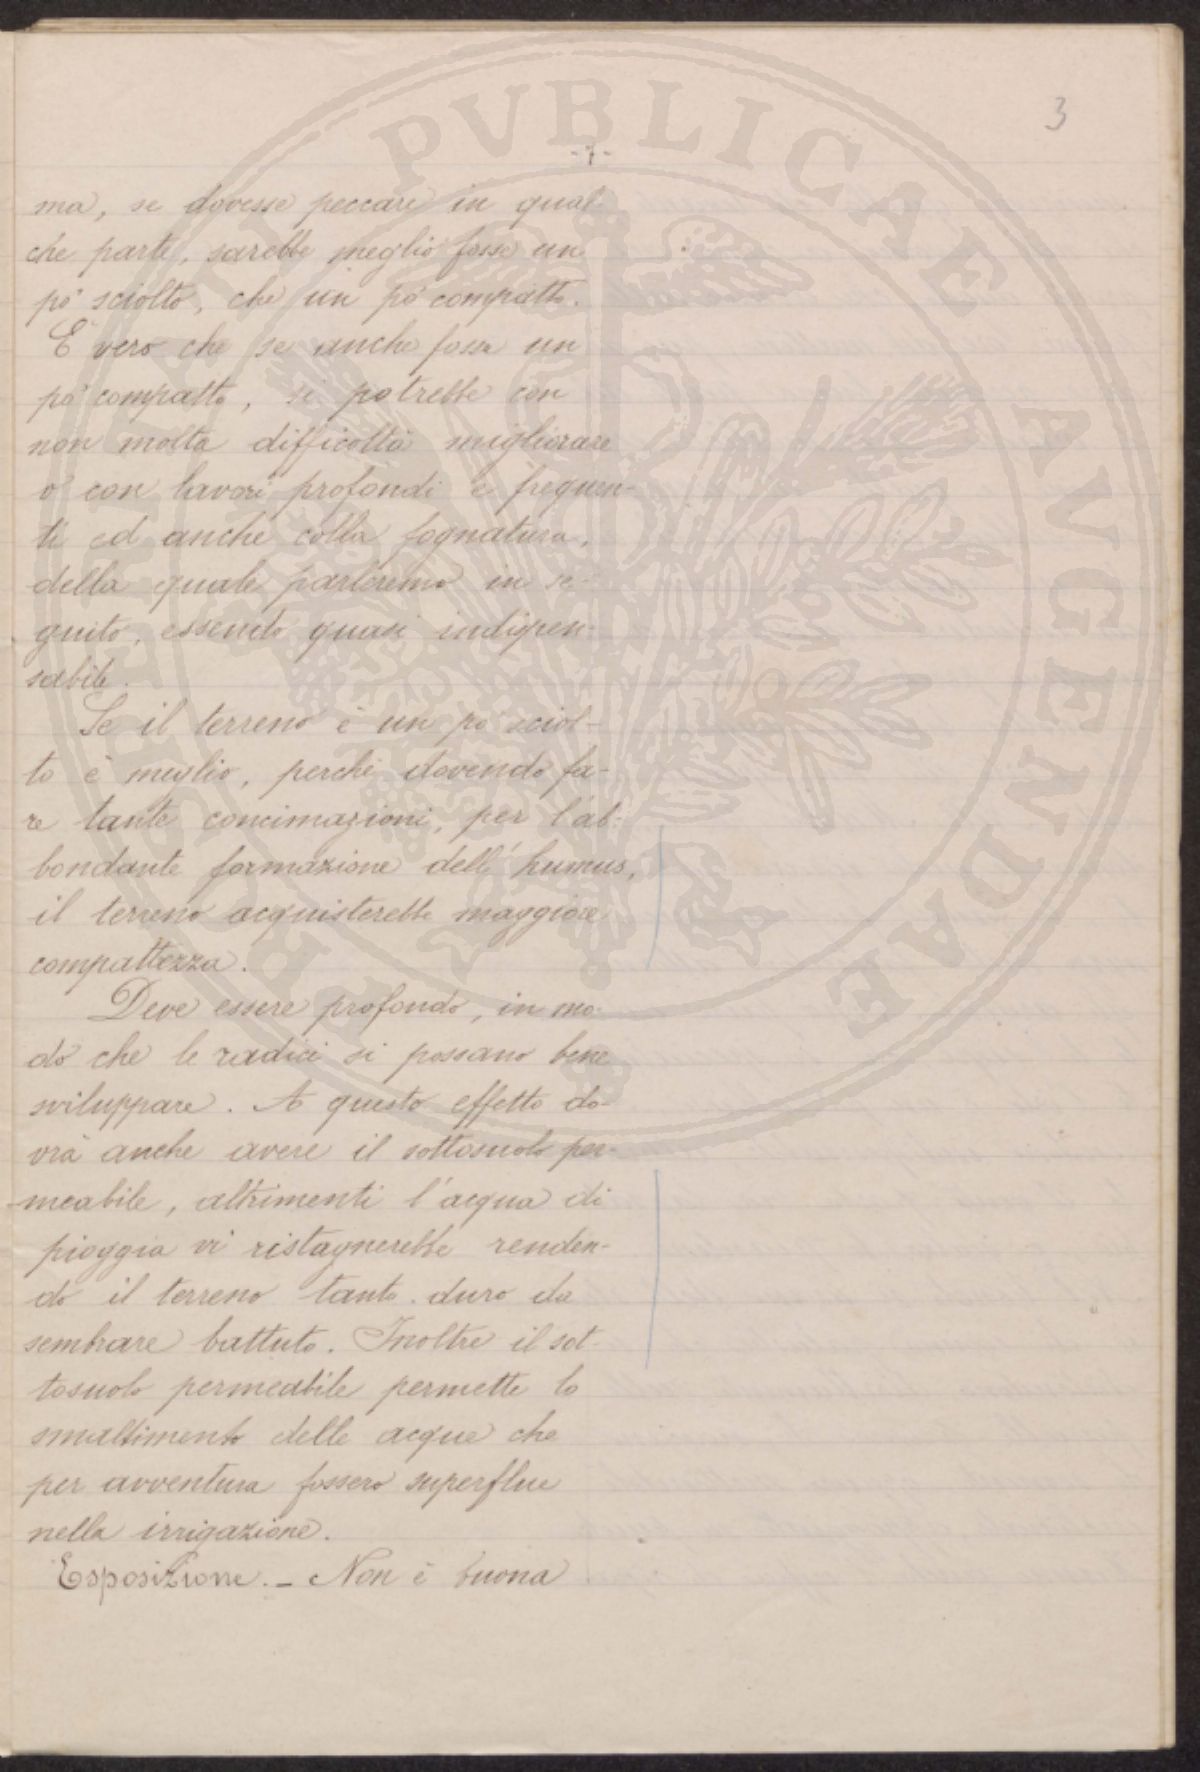 3
-7-
ma, se dovesse peccare in qual-
che parte, sarebbe meglio fosse un
pò sciolto, che un pò compatto.
È vero che se anche fosse un
pò compatto, si potrebbe con
non molta difficoltà migliorare
o con lavori profondi e frequen-
ti ed anche colla fognatura,
della quale parleremo in se-
guito, essendo quasi indispen-
sabile.
Se il terreno è un pò sciol-
to è meglio, perchè dovendo fa-
re tante concimazioni, per l'ab-
bondante formazione dell'humus,
il terreno acquisterebbe maggiore
compattezza.
Deve essere profondo, in mo-
do che le radici si possano bene
sviluppare. A questo effetto do-
vrà anche avere il sottosuolo per-
meabile, altrimenti l'acqua di
pioggia vi ristagnerebbe renden-
do il terreno tanto duro da
sembrare battuto. Inoltre il sot-
tosuolo permeabile permette lo
smaltimento delle acque che
per avventura fossero superflue
nella irrigazione.
Esposizione. - Non è buona
PVBLICAE AVGENDAE